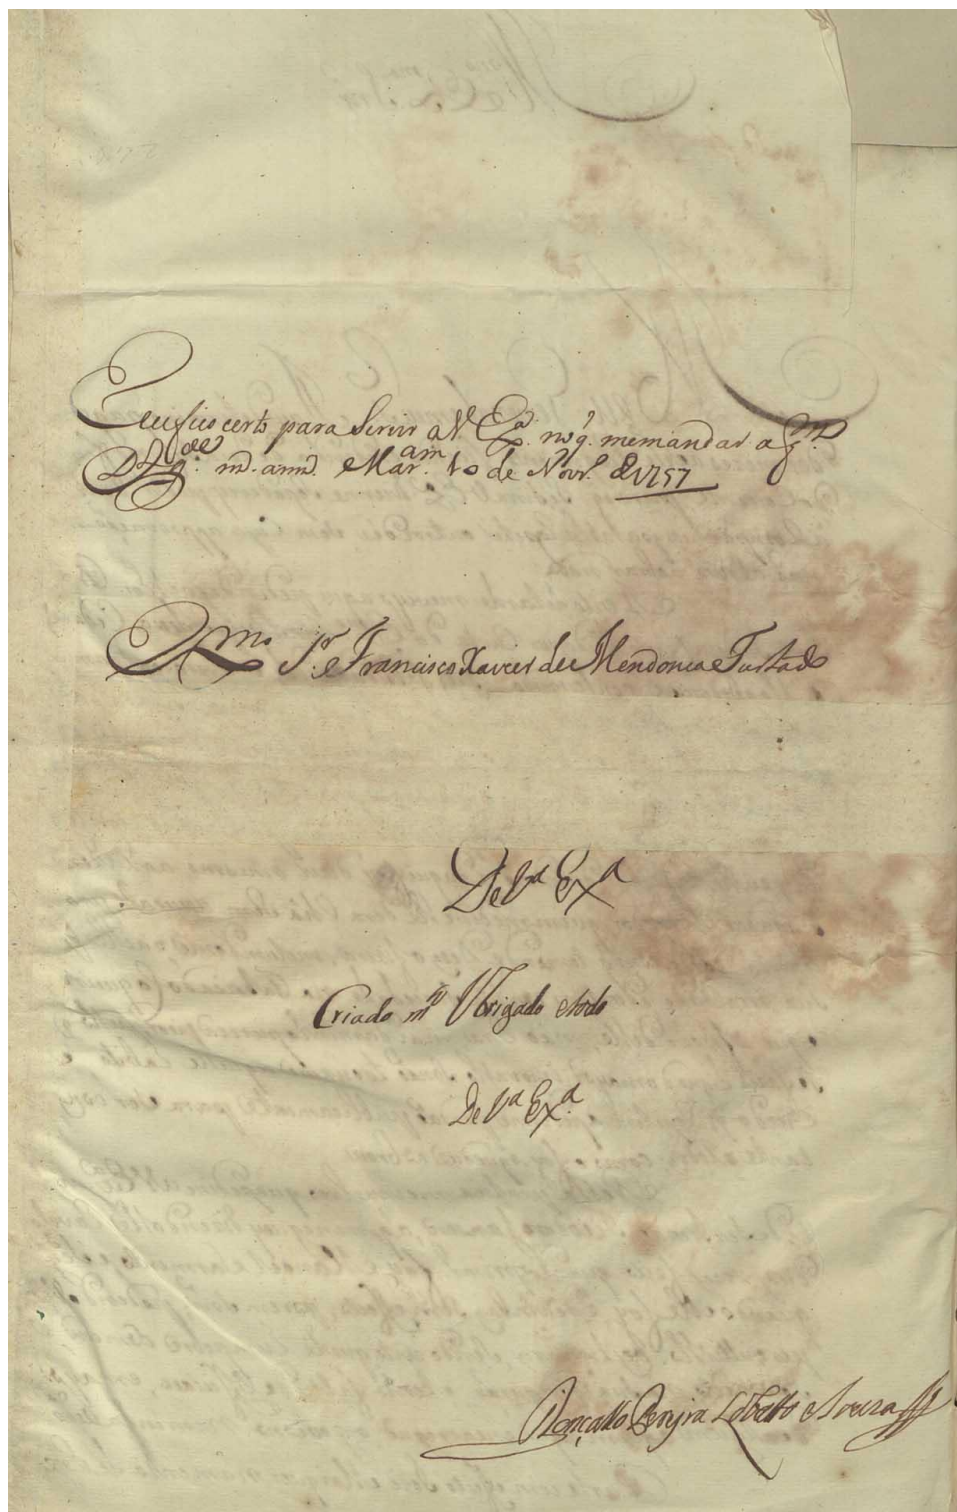 eu fico certo para Servir a V Exa. no q. me mandar a qm
Ds. gde. ms. anns. Maram. 10 de Novr. de 1757
Exmo Sr. Francisco Xavier de Mendonca Furtado
De Va Exa
Criado mto Obrigado
De Va Exa.
Gonçallo Pereyra Lobatto e Souza